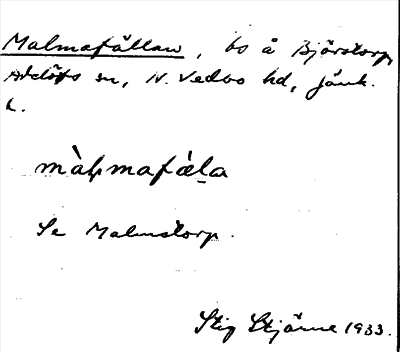 Malmafällan, bs å Björstorp,
Adelövs sn, N. Vedbo hd, Jönk.
L.
màḷmafàla
Se Malmstorp.
Stig Stjärne 1933.